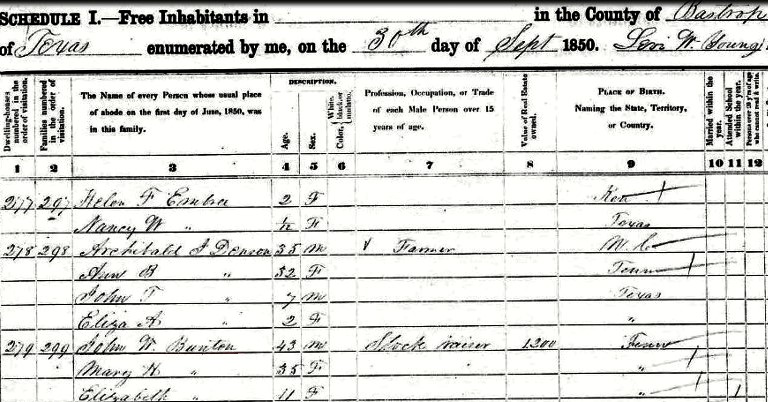 SCHEDULE I.—Free Inhabitants in in the County of Bastrop
of Texas enumerated by me, on the 30th day of Sept 1850. Levi W. Young
Dwelling-houses numbered in the order of visitation.
Families numbered in the order of visitation.
The Name of every Person whose usual place of abode on the first day of June, 1850, was in this family.
DESCRIPTION.
Age.
Sex.
Color, White, black or mulatto.
Profession, Occupation, or Trade of each Male Person over 15 years of age.
Value of Real Estate owned.
PLACE OF BIRTH.
Naming the State, Territory, or Country.
Married within the year.
Attended School within the year.
Persons over 20 y'rs of age who cannot read & write.
1 2 3 4 5 6 7 8 9 10 11 12
277 297 Helen F Embree 2 F Ken
Nancy W " ½ F Texas
278 298 Archibald J Denson 35 M Farmer N.C.
Ann B " 32 F Tenn
John T " 7 M Texas
Eliza A. " 2 F "
279 299 John W. Bunton 43 M Stock raiser 1300 Tenn
Mary H " 35 F "
Elizabeth " 11 F " 1